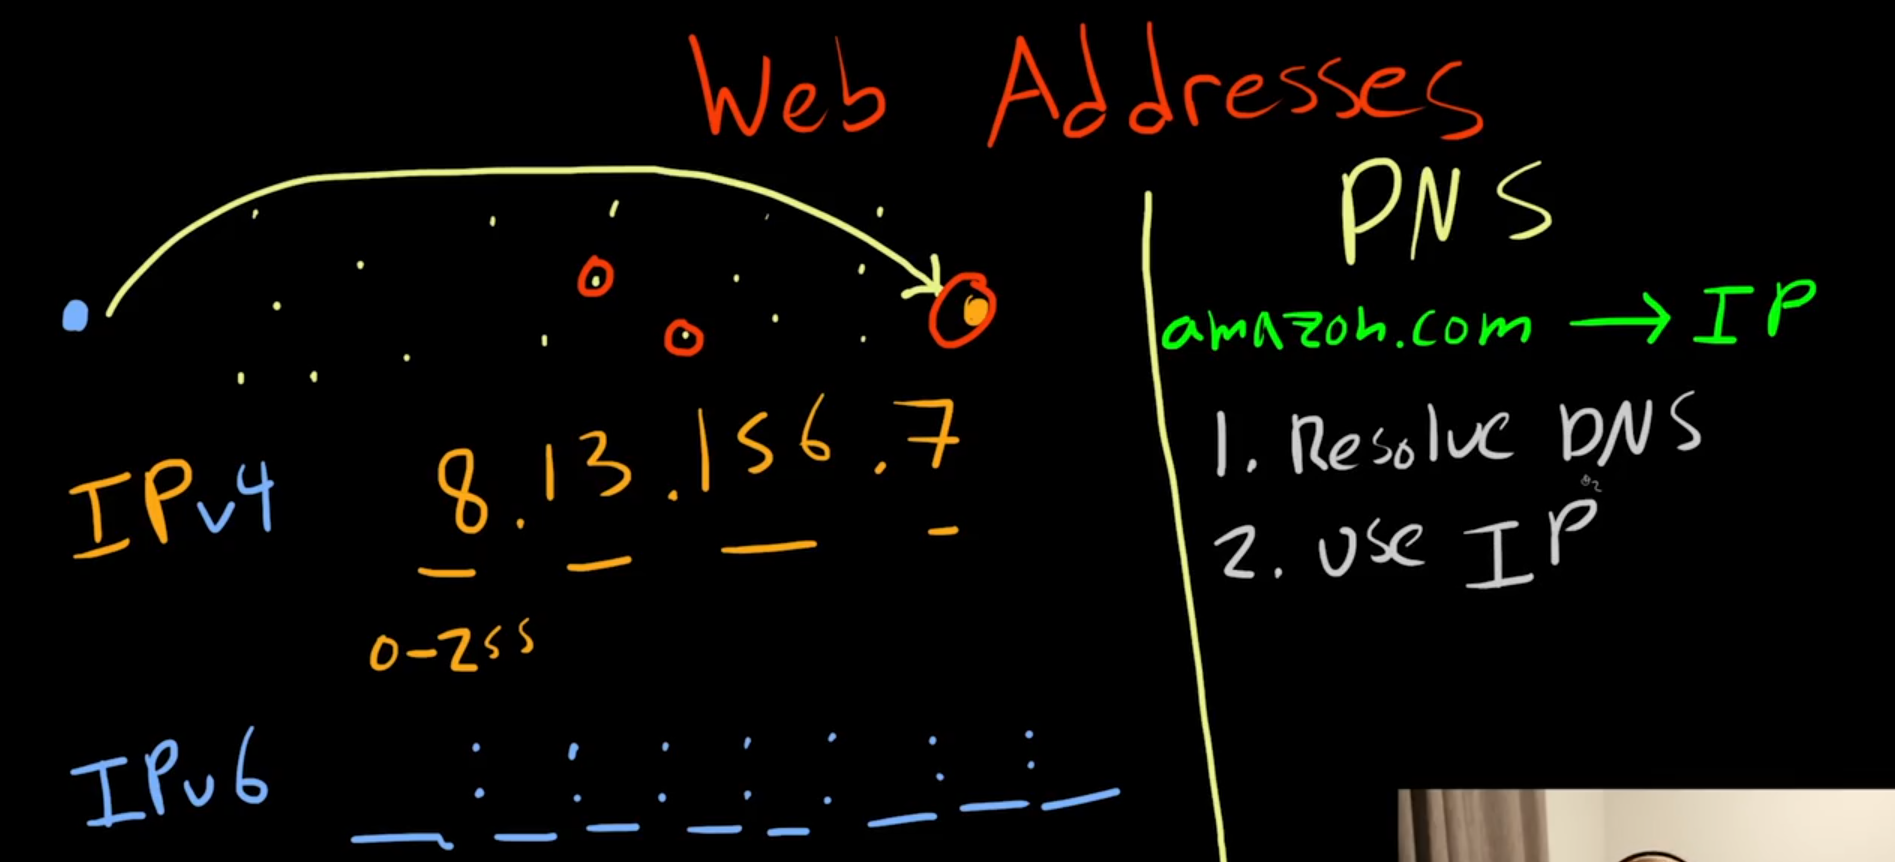 Web Addresses
IPv4 8.13.156.7
0-255
IPv6 : : : : : : :
DNS
amazon.com → IP
1. Resolve DNS
2. use IP